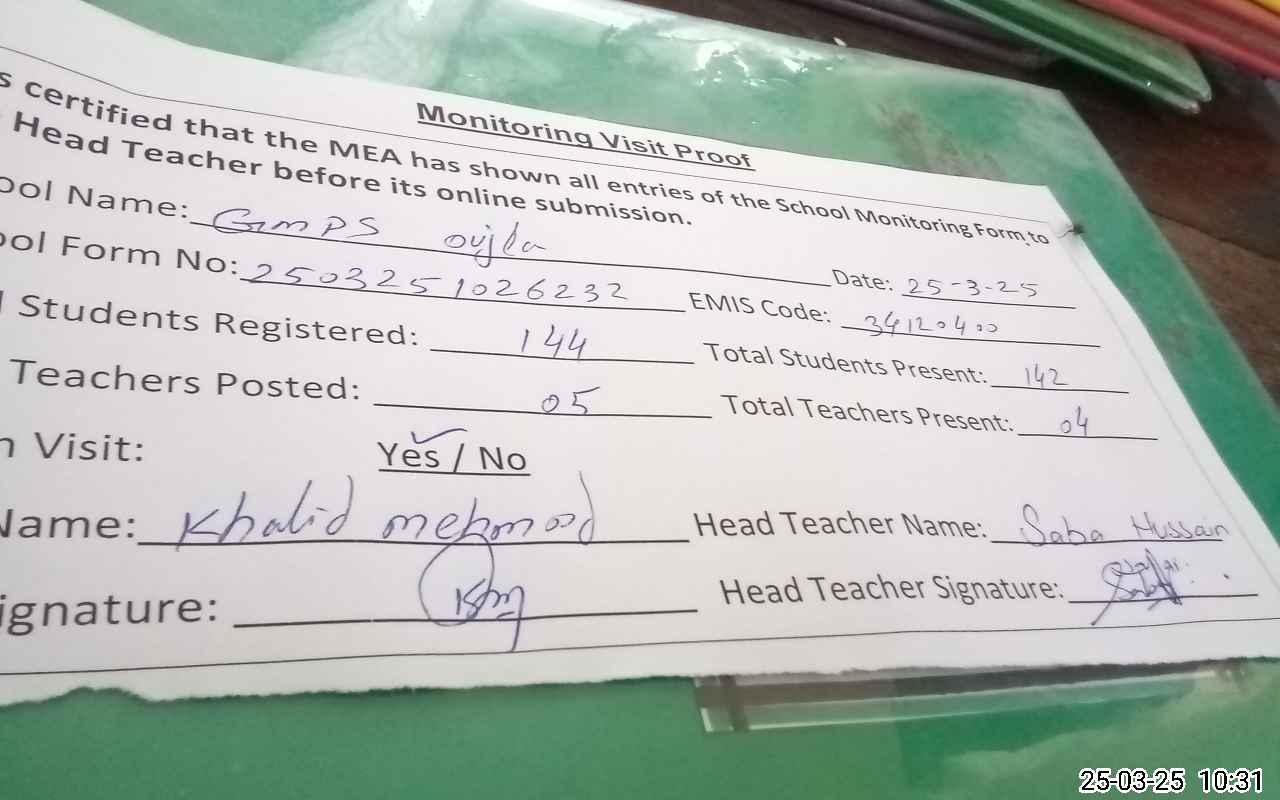 Monitoring Visit Proof
s certified that the MEA has shown all entries of the School Monitoring Form to
Head Teacher before its online submission.
ool Name: GMPS oujla Date: 25-3-25
ool Form No: 2503251026232 EMIS Code: 34120400
l Students Registered: 144 Total Students Present: 142
Teachers Posted: 05 Total Teachers Present: 04
n Visit: Yes / No
Name: Khalid mehmood Head Teacher Name: Saba Hussain
ignature: Head Teacher Signature:
25-03-25 10:31